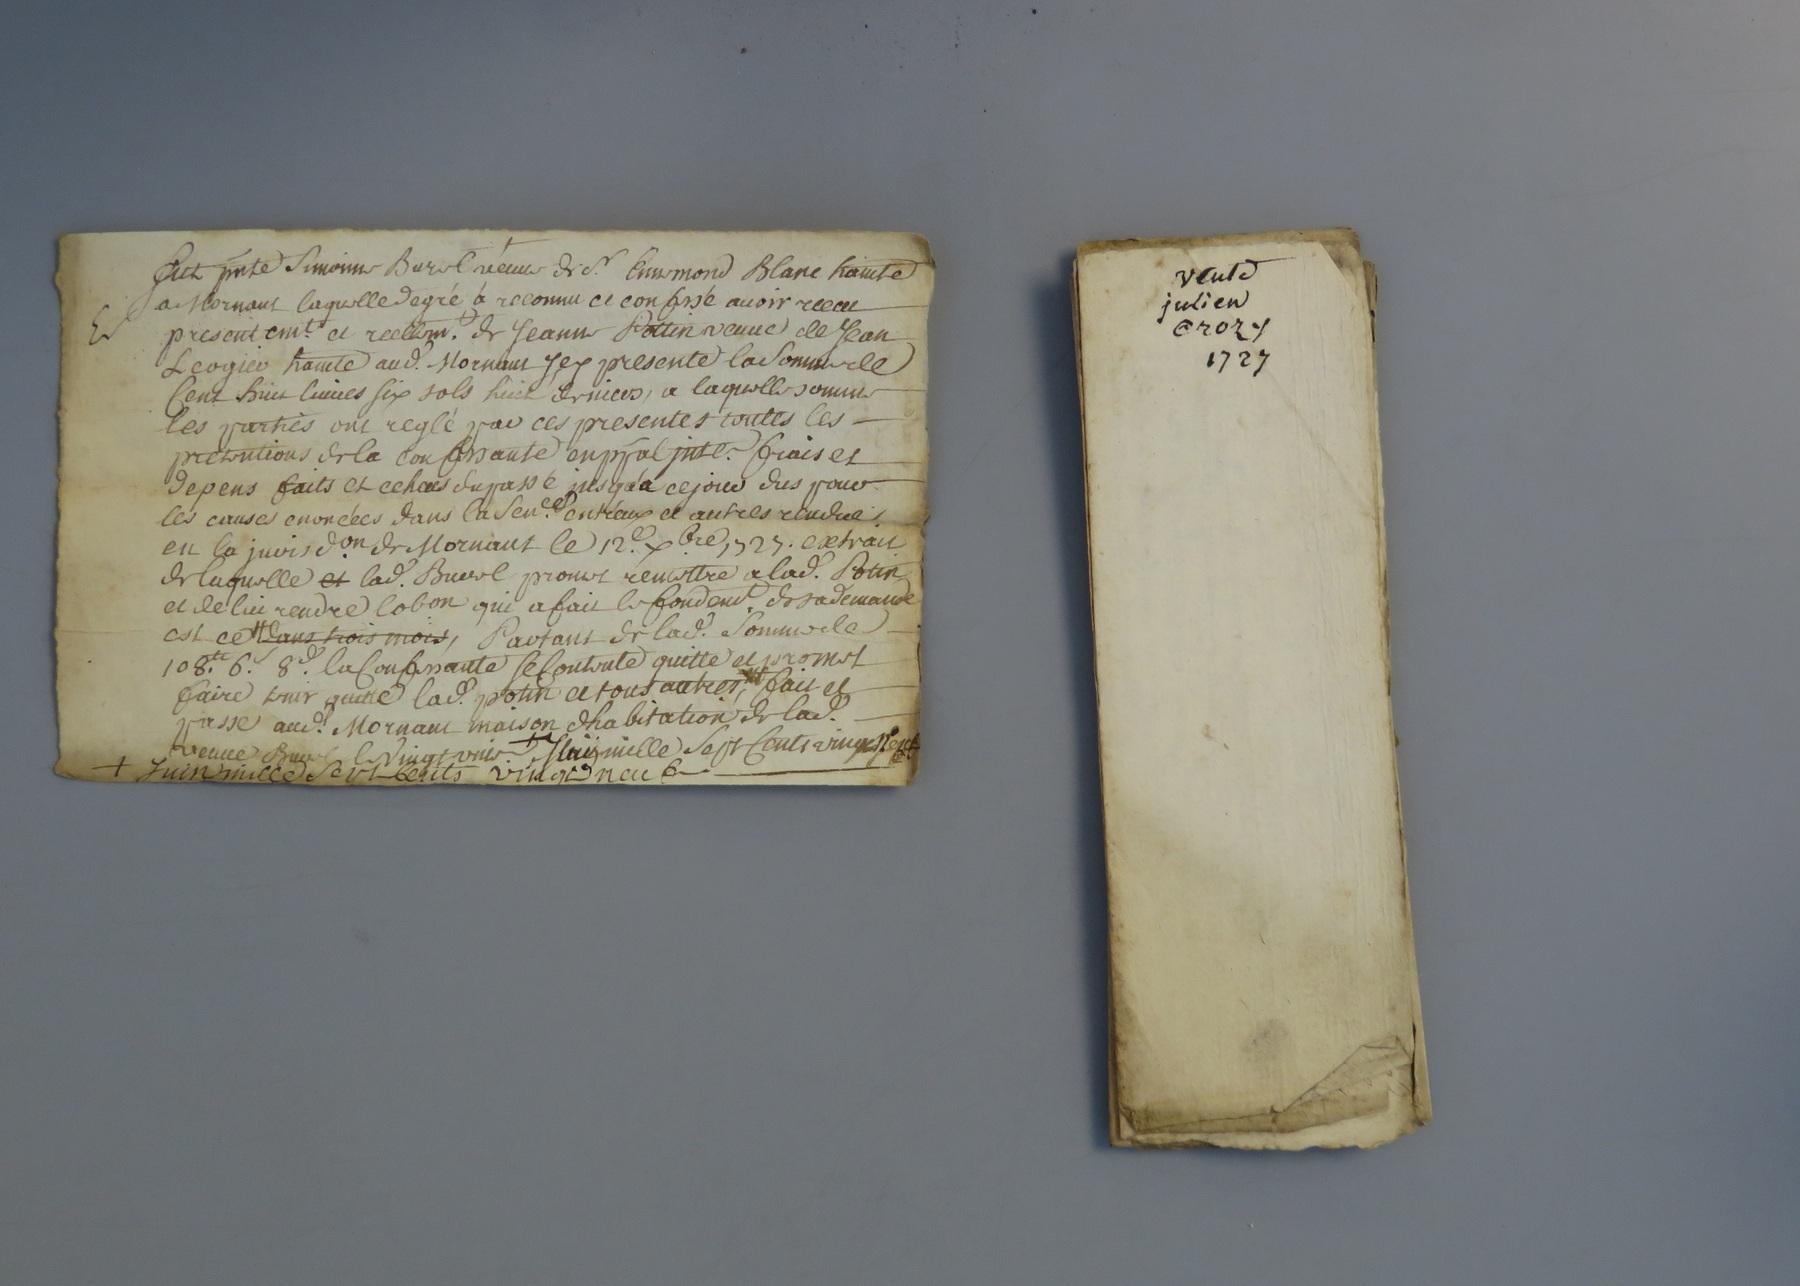 fut pnte Simonne Burel veuve de Sr Ennemond Blanc hainte
a Mornant laquelle de gré à reconnu et confessé avoir receu
presentemt et reellemt de Jeanne Pottin veuve de Jean
Leogier hainte aud. Mornant Jey presente la Somme de
Cent huit livres six sols huit deniers, a laquelle somme
les parties ont reglé par ces presentes toutes les
pretentions de la confessante en ppal intes. frais et
depens faits et du passé jusqua ce jour dus pour
les causes enoncées dans la Sence entreux et autres rendue
en la jurisdon de Mornant le 12e xbre 1727. extrait
de laquelle et lad. Burel promet remettre a lad. Potin
et de lui rendre lobon qui a fait le fondemt de sa demande
est ce dans trois mois, Partant de lad. Somme de
108tt 6s 8d la Confessante se Contente quitte et promet
faire tenir quitte lad. potin et tous autres, fait et
passé aud. Mornant maison dhabitation de lad.
veuve Burel le Vingt mille Sept Cents vingt neuf
+ Juin mille Sept Cents vingt neuf
vente
julien
Crozy
1727